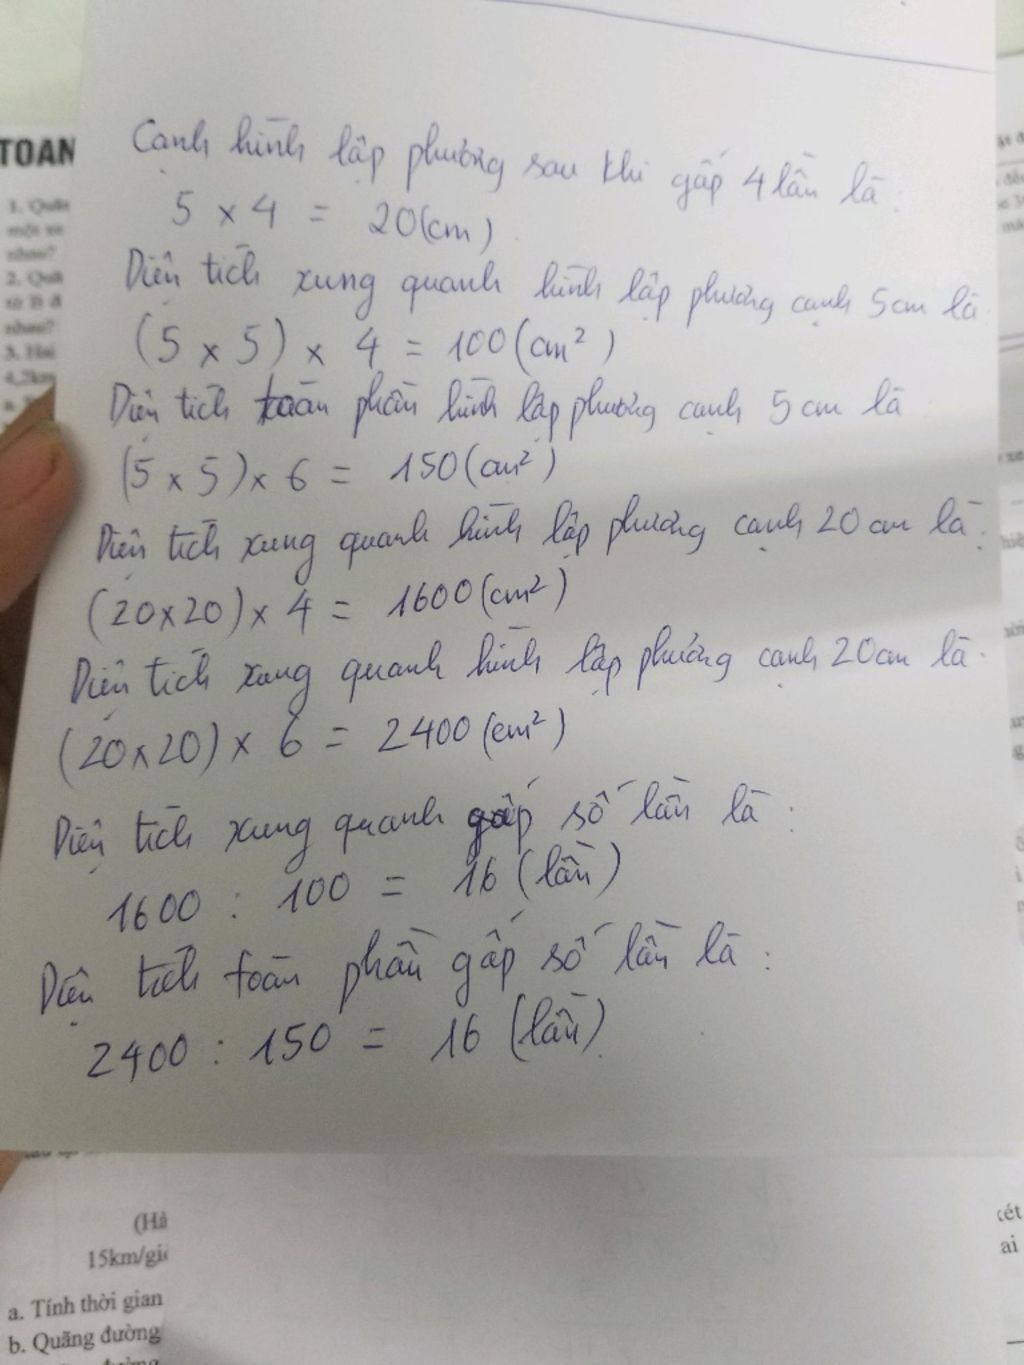 Cạnh hình lập phương sau khi gấp 4 lần là:
5 x 4 = 20(cm)
Diện tích xung quanh hình lập phương cạnh 5cm là
(5 x 5) x 4 = 100(cm²)
Diện tích toàn phần hình lập phương cạnh 5cm là
(5 x 5) x 6 = 150(cm²)
Diện tích xung quanh hình lập phương cạnh 20cm là:
(20x20) x 4 = 1600(cm²)
Diện tích xung quanh hình lập phương cạnh 20cm là.
(20x20) x 6 = 2400(cm²)
Diện tích xung quanh gấp số lần là:
1600 : 100 = 16 (lần)
Diện tích toàn phần gấp số lần là:
2400 : 150 = 16 (lần)
TOAN
1. Quãn
một xe
nhau?
2. Quã
từ B đ
nhau?
3. Hai
4,2km
(Hà
15km/giờ
a. Tính thời gian
b. Quãng đường
ai